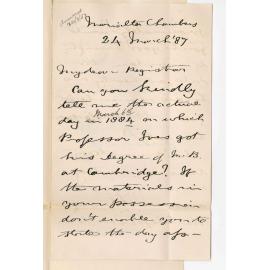 Chambers
24 March '87
My dear Registrar
Can you kindly
tell me the actual
March 63
day in 1884 on which
Professor Ives got
his degree of M.B.
at Cambridge? If
the materials in
your possession
don't enable you to
state the day